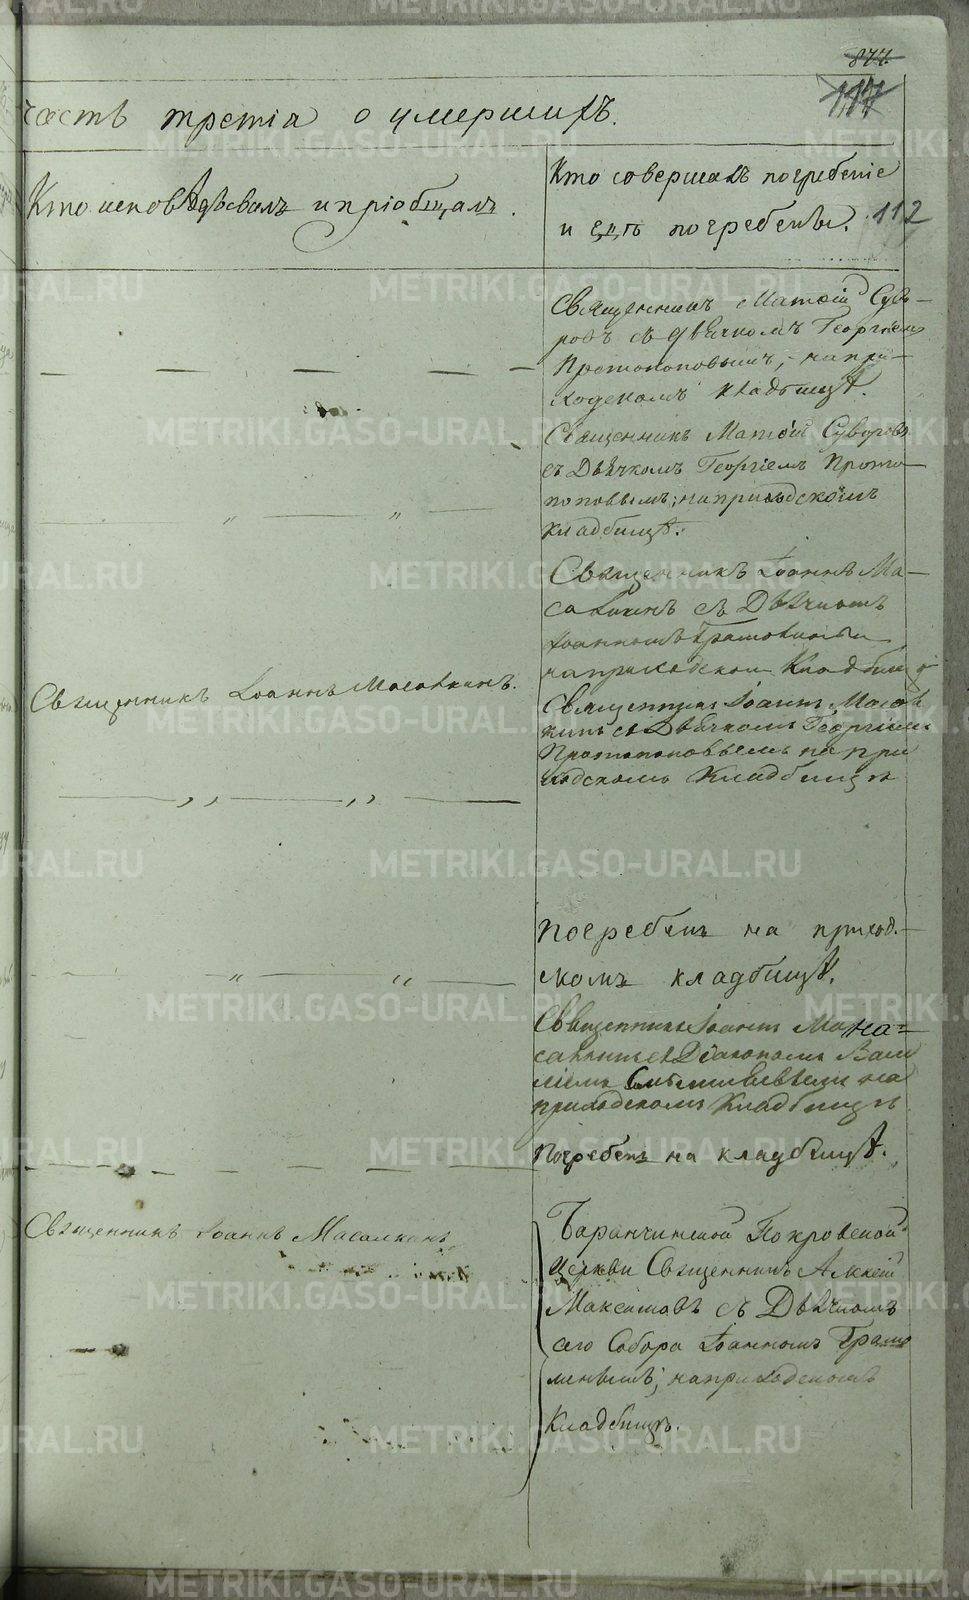 877.
117
часть третiя о умершихъ.
Кто исповѣдывалъ и прiобщалъ.
Кто совершалъ погребенiе
и гдѣ погребены.
112
Священникъ Матѳiй Суво-
ровъ съ дьячкомъ Георгiемъ
Протопоповымъ, на при-
ходскомъ кладбищѣ.
Священникъ Матѳiй Суворовъ
съ Дьячкомъ Георгiемъ Прото-
поповымъ; на приходскомъ
кладбищѣ.
Священникъ Iоаннъ Ма-
салкинъ съ Дьячкомъ
Iоанномъ
на приходскомъ Кладбищѣ
Священникъ Iоаннъ Масалкинъ.
Священникъ Iоаннъ Масал
кинъ съ Дьячкомъ Георгiемъ
Протопоповымъ на при
ходскомъ Кладбищѣ
Погребенъ на приход-
скомъ кладбищѣ.
Священникъ Iоаннъ Ма
салкинъ съ Дiакономъ Васи
лiемъ на
приходскомъ Кладбищѣ
Погребенъ на кладбищѣ.
Священникъ Iоаннъ Масалкинъ
Баранчинской Покровской
церкви Священникъ Алексiй
Максимовъ съ Дьячкомъ
сего Собора Iоанномъ
на приходскомъ
Кладбищѣ.
METRIKI.GASO-URAL.RU